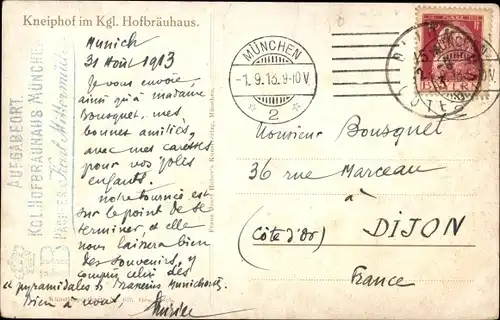 Kneiphof im Kgl. Hofbräuhaus.
Munich
31 Août 1913
Je vous envoie
ainsi qu'à madame
Bousquet, mes
bonnes amitiés,
avec mes caresses
pour vos jolis
enfants.
notre tournée est
sur le point de se
terminer, et elle
nous laissera bien
des souvenirs, y
compris celui des
et pyramidales Brasseries Munichoises
Bien à vous,
AUFGABEORT
KGL. HOFBRÄUHAUS MÜNCHEN
PÄCHTER Karl Mittermüller
HB
MÜNCHEN
-1.9.13.9-10V.
2
BAYERN
MÜNCHEN
Monsieur Bousquet
36 rue Marceau
à
DIJON
(Côte d'Or)
France